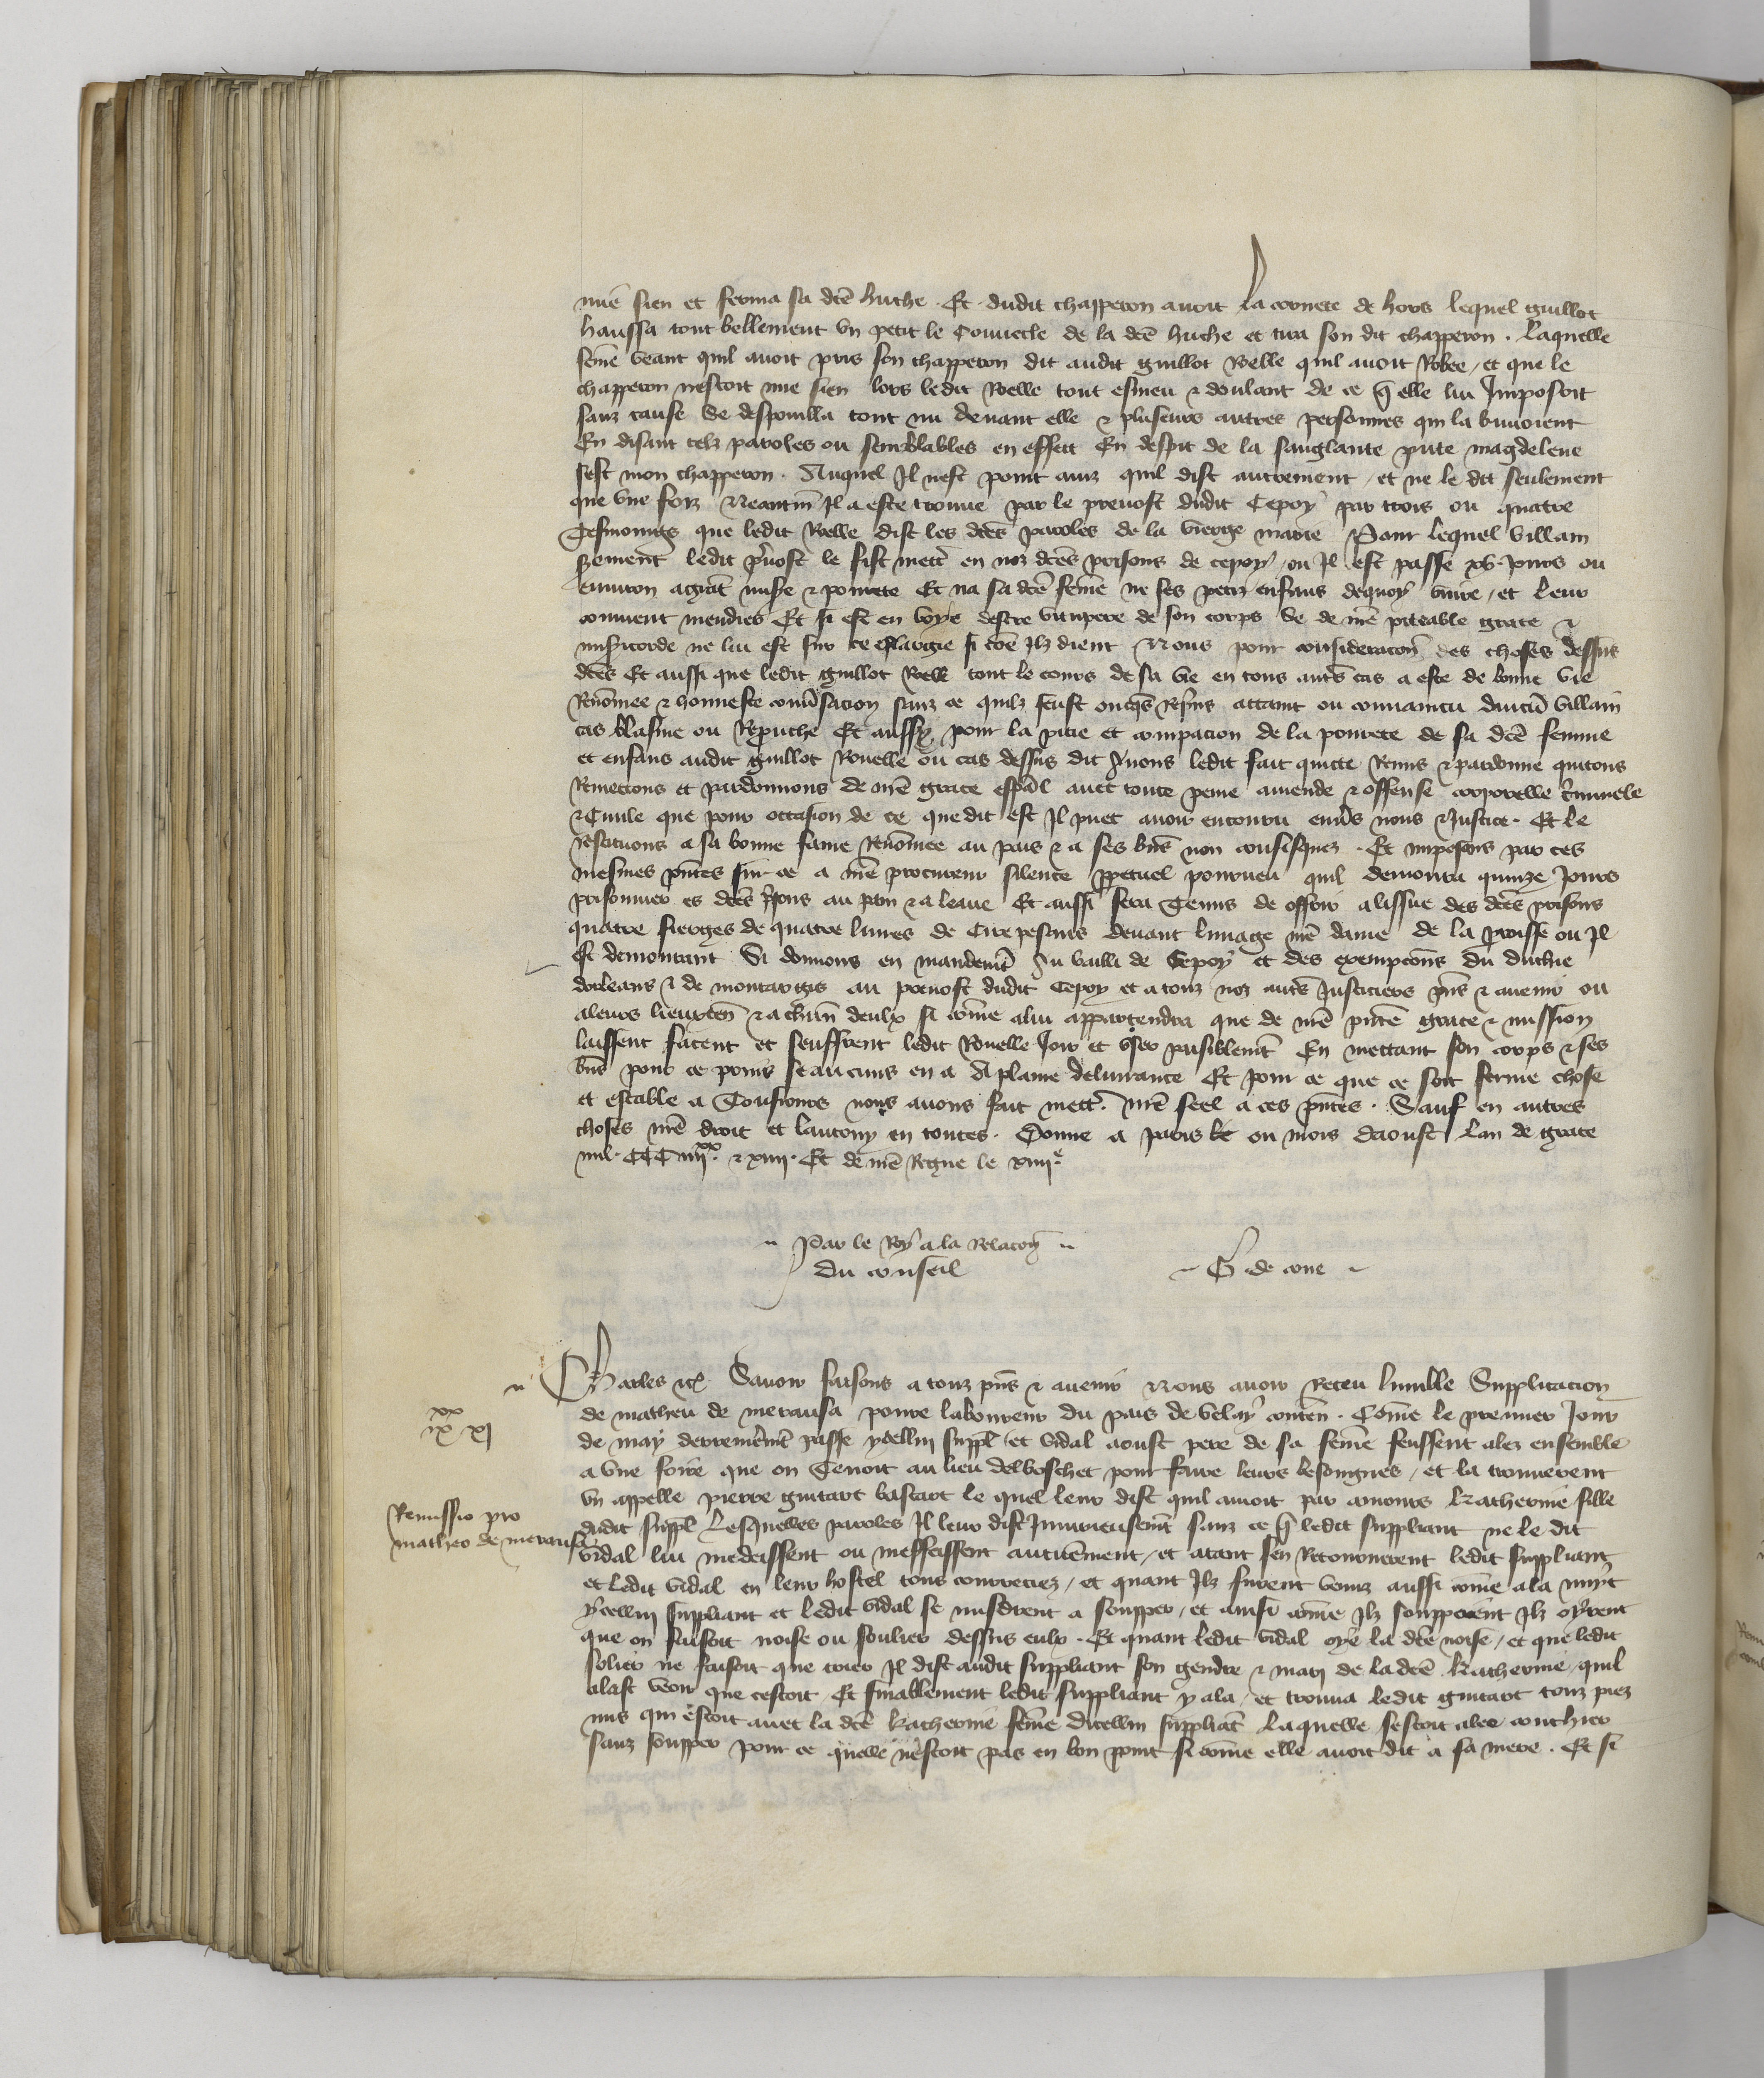 mie sien et ferma sa dcē huche . Et dudit chapperon avoit la cornete de hors lequel guillot
haussa tout bellement un petit le couvercle de la dcē huche et tira son dit chapperon . Laquelle
fēme veant quil avoit pris son chapperon dit audit guillot Roelle quil avoit Robee / et que le
chapperon nestoit mie sien lors ledit Roelle tout esmeu & doulant de ce q̄ elle lui Imposoit
sanz cause se despouilla tout nu devant elle & pluseurs autres personnes qui la buvoient
En disant telz paroles ou semblables en effect En despit de la sanglante pute magdelene
sest mon chapperon . Auquel Il nest point aux quil dist autrement / et ne le dit seulement
que une foiz Neantm̄ Il a este trouve par le prevost dudit Cepoy par trois ou quatre
Tesmoings que ledit Roelle dist les dcēs paroles de la vierge marie Pour lequel villain
serment ledit p̄vost le fist mettr̄ en noz dcēs prisons de cepoy / ou Il est passe xv. Jours ou
environ a grāt misē & povrete Et na sa dcē fēme ne ses petiz enfans dequoy vivre / et leur
convient mendier Et si est en voye destre vitupere de son corps Se de nr̄e piteable grace &
misericorde ne lui est sur ce eslargie si cōe Ilz dient Nous pour consideracoñ des choses dessus
dcēs Et aussi que ledit guillot Roelle tout le cours de sa vie en tous autrēs cas a este de bonne vie
Renōmee & honneste conv̄sacion sanz ce quilz feust onq̄s Rep̄ins attaint ou convaincu daucū villain
cas blasme ou Reprouche Et aussy pour la pitie et compacion de la povrete de sa dcē femme
et enfans audit guillot Rouelle ou cas dessus dit Avons ledit fait quicte Remis & pardonne quitons
Remettons et pardonnons de nr̄e grace esp̄al avec toute peine amende & offense corporelle c̄riminele
& Civile que pour occasion de ce que dit est Il puet avoir encouru env̄s nous & Justice . Et le
restituons a sa bonne fame Renōmee au pais & a ses biēs non confisquez . Et imposons par ces
mesmes p̄ntes sur ce a nr̄e procureur silence p̄petuel pourveu quil demourra quinze Jours
prisonnier es dcēs p̄sons au pain & a leaue Et aussi sera Tenus de offrir a lissue des dcēs prisons
quatre sierges de quatre livres de Cire pesans devant limage nr̄e dame de la p̄roisse ou Il
est demourant Si donnons en mandemēt Au bailli de Cepoy et des exempcōns du duchie
dorleans & de montargis au prevost dudit Cepoy et a touz noz autrēs Justiciers p̄ns & avenir ou
aleurs lieuxten̄ & a chūn deulx si cōme a lui appartendra que de nr̄e p̄nte grace & Remission
laissent facent et seuffrent ledit Rouelle Joir et user paisiblemēt En mettant son corps & ses
biēs pour ce prins se aucuns en a A plaine delivrance Et pour ce que ce soit ferme chose
et estable a Tousjours nous avons fait mettr̄ . nr̄e seel a ces p̄ntes . Sauf en autres
choses nr̄e droit et lautruy en toutes . Donne a paris ou mois daoust Lan de grace
mil . CCC iiii.xx & xiiii . Et de nr̄e Regne le xiiii.e
Par le Roy a la Relacoñ
du conseil
G de cone
Charles &c̄ . Savoir faisons a touz p̄ns & avenir Nous avoir Receu lumble Supplicacion
xx
ix xi
de matheu de merausa povre laboureur du pais de velay conten̄ . Cōme le premier Jour
de may derrenierem̄t passe ycellui suppl̄ et vidal aoust pere de sa fēme feussent alez ensemble
a une foire que on Tenoit au lieu delboschet pour faire leurs besoingnes / et la trouverent
un appelle pierre guitart bastart le quel leur dist quil amoit par amours Katherine fille
Remissio pro
matheo de merausa
dudit suppl̄ Lesquelles paroles Il leur dist Injurieusem̄t sanz ce q̄ ledit suppliant ne le dit
vidal lui medeissent ou meffeissent autrēment / et atant sen Retournerent ledit suppliant
et ledit vidal en leur hostel tous courreciez / et quant Ilz furent venuz aussi cōme ala nuyt
ycellui suppliant et ledit vidal se misdrent a soupper / et ainsi cōme Ilz soupperent Ilz oyrent
que on faisoit noise ou soulier dessus eulx . Et quant ledit vidal oye la dcē noise / et que ledit
solier ne faisoit que crier Il dist audit suppliant son gendre & mary de la dcē Katherine / quil
alast veoir que cestoit . Et finablement ledit suppliant y ala / et trouva ledit guitart touz piez
nus qui estoit avec la dcē Katherine fēme dicellui suppliāt Laquelle sestoit alee couchier
sanz soupper pour ce quelle nestoit pas en bon point si cōme elle avoit dit a sa mere . Et si